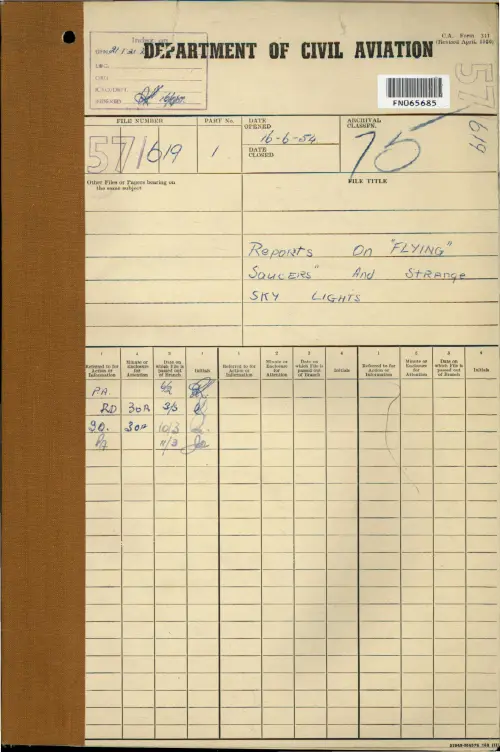 C.A. Form 311
(Revised April, 1950)
Index on
DEPARTMENT OF CIVIL AVIATION
FN065685
57
619
FILE NUMBER
PART No.
DATE OPENED
ARCHIVAL CLASSFN.
57/619
1
16-6-54
75
DATE CLOSED
Other Files or Papers bearing on
the same subject
FILE TITLE
Reports On "FLYING"
SAUCERS" And Strange
SKY LIGHTS
1 2 3 4 1 2 3 4 1 2 3 4
Referred to for Action or Information
Minute or Enclosure for Attention
Date on which File is passed out of Branch
Initials
Referred to for Action or Information
Minute or Enclosure for Attention
Date on which File is passed out of Branch
Initials
Referred to for Action or Information
Minute or Enclosure for Attention
Date on which File is passed out of Branch
Initials
PA.
RD 30A 9/3
30A 10/3
PA 11/3